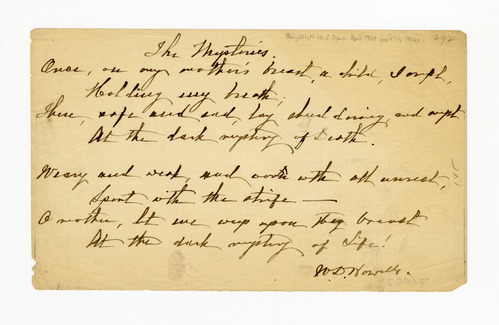 292
The Mysteries.
Once, on my mother's breast, a child, I crept,
Holding my breath;
There, safe and sad, lay shuddering, and wept
At the dark mystery of Death.
Weary and weak, and worn with all unrest,
Spent with the strife —
O mother, let me weep upon thy breast
At the dark mystery of Life!
W. D. Howells.